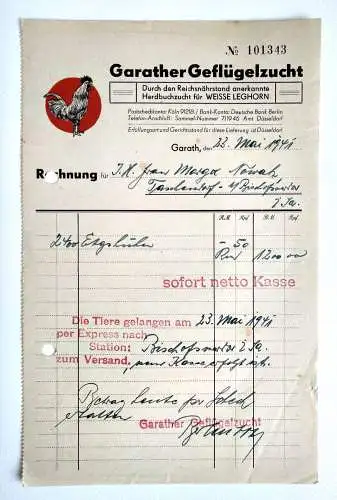 № 101343
Garather Geflügelzucht
Durch den Reichsnährstand anerkannte
Herdbuchzucht für WEISSE LEGHORN
Postscheckkonto Köln 91218 / Bank-Konto: Deutsche Bank Berlin
Telefon-Anschluß: Sammel-Nummer 71946 Amt Düsseldorf
Erfüllungsort und Gerichtsstand für diese Lieferung ist Düsseldorf
Garath, den 22. Mai 1941
Rechnung für I.H. Frau Marga Nowak
i/Sa.
R.M. Rpf. R.M. Rpf.
2400 - 50 1200 00
sofort netto Kasse
Die Tiere gelangen am 23. Mai 1941
per Express nach
Station: Bischofswerda i/Sa.
zum Versand, wenn Kasse erfolgt ist.
Betrag heute per Scheck
erhalten
Garather Geflügelzucht